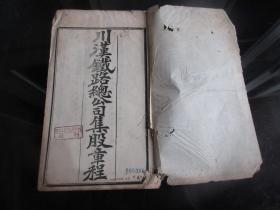 川漢鐵路總公司集股章程